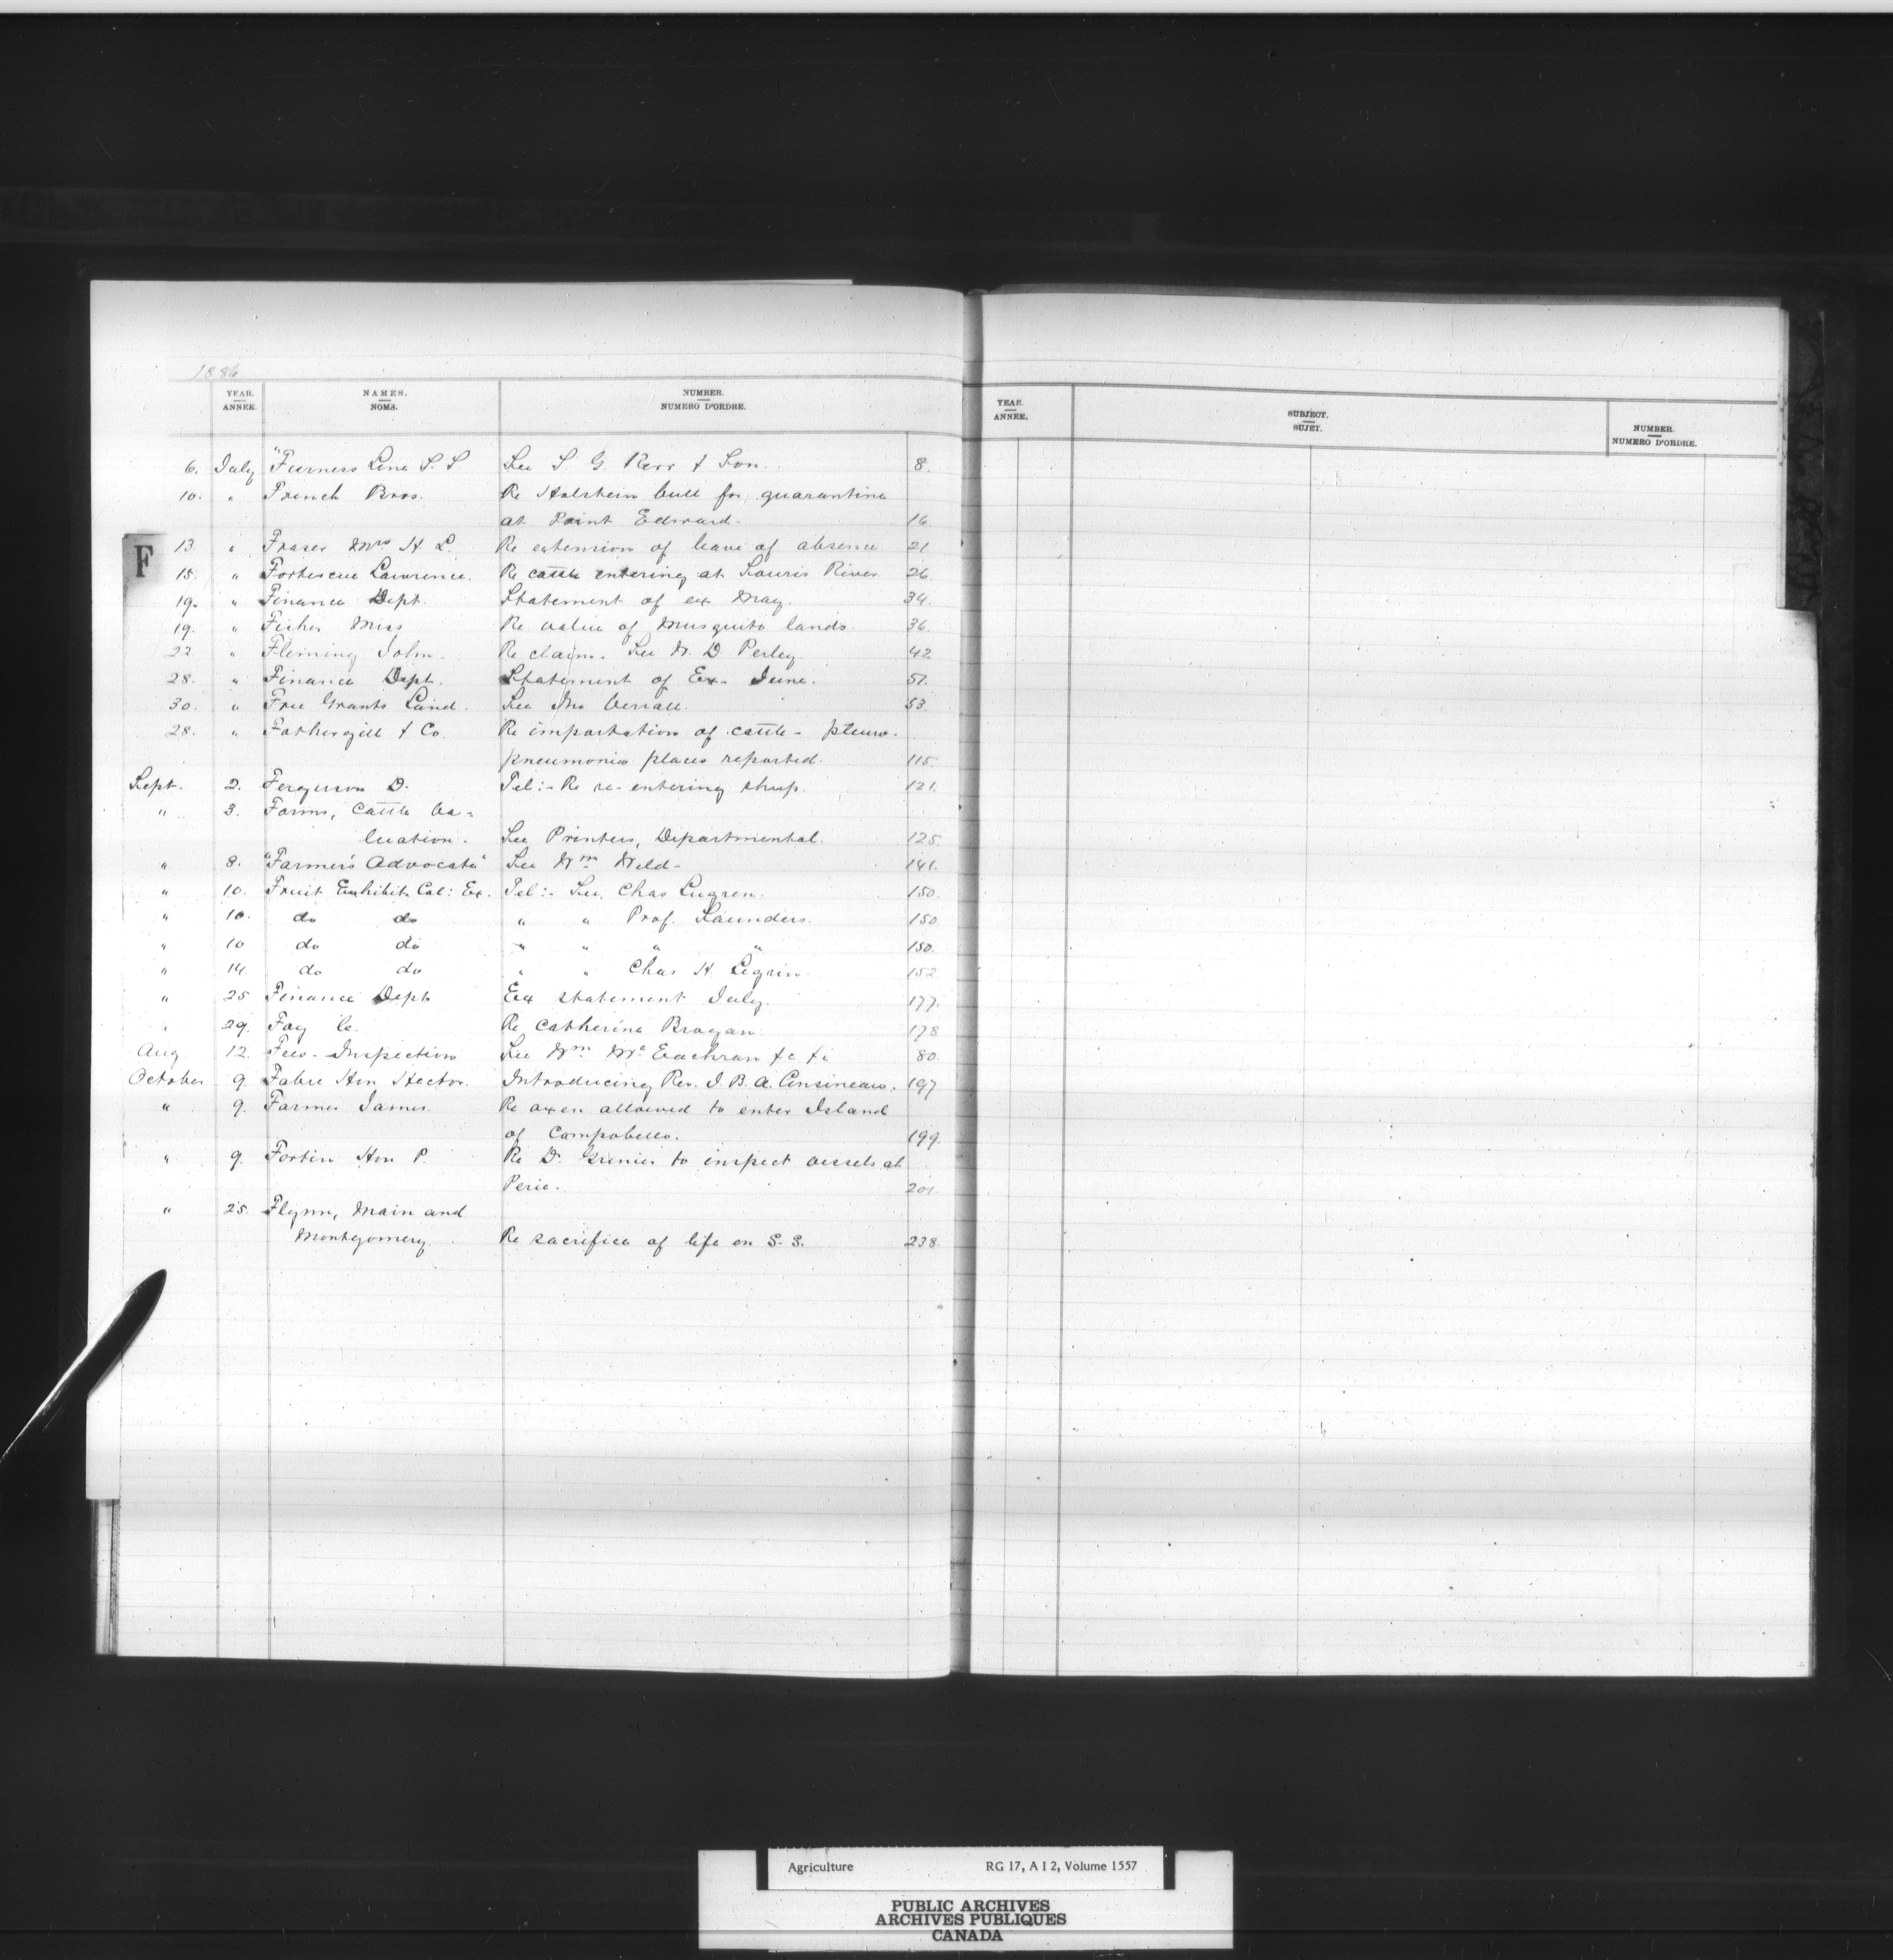 1886
YEAR. NAMES. NUMBER.
ANNEE. NOMS. NUMERO D'ORDRE.
YEAR. SUBJECT. NUMBER.
ANNEE. SUJET. NUMERO D'ORDRE.
F
6. July "Furness Line S. S. See S G. Kerr & Son. 8.
10. " French Bros. Re Holstein bull for quarantine
at Point Edward. 16
13 " Fraser Mrs H. L. Re extension of leave of absence 21
15. " Fortescue Lawrence. Re cattle entering at Souris River 26
19. " Finance Dept. Statement of ex May. 34.
19. " Fisher Miss Re value of Musquito lands 36.
22. " Fleming John. Re claim. See W. D Perley. 42
28. " Finance Dept. Statement of Ex- June. 51.
30. " Free Grants Land. See Jno 53.
28. " Fothergill & Co. Re importation of cattle - pleuro.
pneumonia places reported. 115.
Sept. 2. Ferguson D. Tel:- Re re-entering sheep. 121.
" 3. Farms, Cattle Va-
luation. See Printers, Departmental. 125.
" 8. "Farmer's Advocate" See Wm Weld- 141.
" 10. Fruit Exhibit Col: Ex. Tel:- See, Chas 150.
" 10. do do " " Prof. Saunders. 150
" 10 do do " " " " 150.
" 14. do do " " Chas H. 152
" 25 Finance Dept Ex statement July. 177.
" 29. Foy C. Re Catherine Brogan. 178
Aug 12. Fees - Inspection See Wm McEachran &c &c 80.
October 9. Fabre Hon Hector. Introducing Rev. J. B. A. Cousineau. 197
" 9. Farmer James. Re oxen allowed to enter Island
of Campobello. 199.
" 9. Fortin Hon P. Re D. Grenier to inspect vessels at
201.
" 25. Flynn, Main and
Montgomery. Re sacrifice of life on S. S. 238.
Agriculture RG 17, A I 2, Volume 1557
PUBLIC ARCHIVES
ARCHIVES PUBLIQUES
CANADA